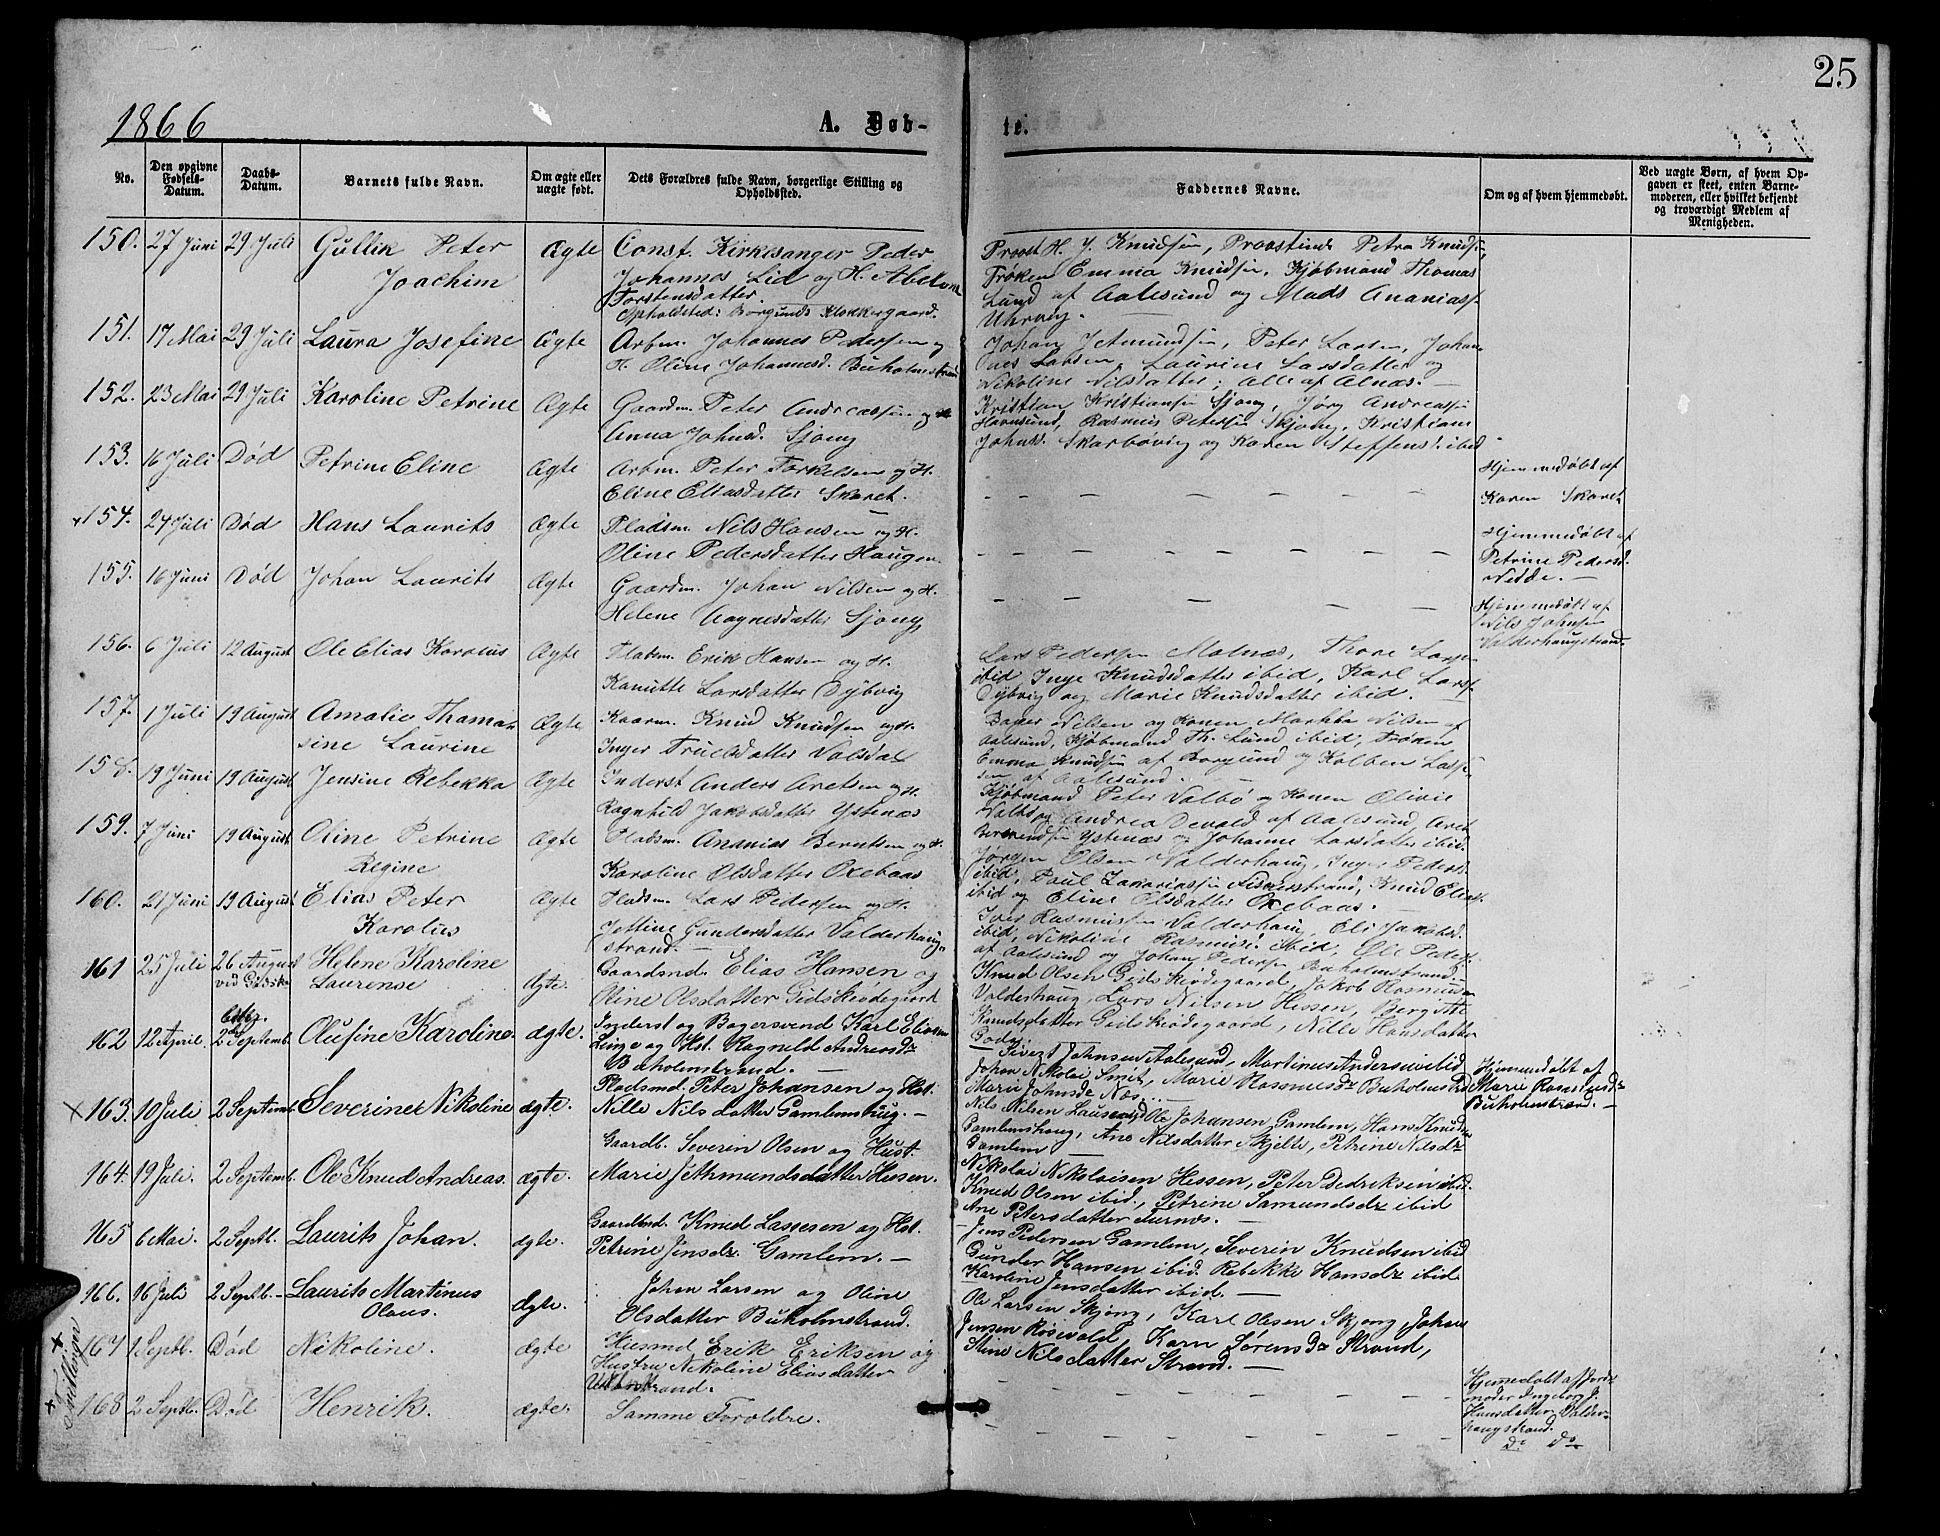 25
1866
A. Døb-
te.
No.
Den opgivne Fødsels-Datum.
Daabs-Datum.
Barnets fulde Navn.
Om ægte eller uægte født.
Dets Forældres fulde Navn, borgerlige Stilling og Opholdssted.
Faddernes Navne.
Om og af hvem hjemmedøbt.
Ved uægte Børn, af hvem Opgaven er skeet, enten Barnemoderen, eller hvilket bekjendt og troværdigt Medlem af Menigheden.
150. 27 Juni 29 Juli Gullik Peter Joachim Ægte
Const. Kirkesanger Peder
Johannes Lid og H.
Torstensdatter.
Opholdsted: Borgunds Klokkergaard.
Provst H. J. Knudsen, Provstinde Petra Knudsen,
Frøken Emma Knudsen, Kjøbmand Thomas
Lund af Aalesund og Mads Ananiass.
151. 17 Mai 29 Juli Laura Josefine Ægte
Arbm. Johannes Pedersen og
H. Oline Johannesd. Buholmstrand
Johan Jetmundsen, Peter Larsen, Johan-
nes Larsen, Laurine Larsdatter og
Nikoline Nilsdatter; Alle af Alnæs. —
152. 23 Mai 29 Juli Karoline Petrine Ægte
Gaardm. Peter Andreassen og H.
Anna Johnsd. Sjong
Kristian Kristiansen Sjong, Jørg Andreassen
Rasmus Petersen Skjong, Kristian
Johns. Skarbøvig og Karen Steffens. ibid
153. 16 Juli Død Petrine Eline Ægte
Arbm. Peter Torkelsen og H.
Eline Eliasdatter Skaret.
Hjemmedøbt af
Karen Skaret
154. 24 Juli Død Hans Laurits Ægte
Pladsm. Nils Hansen og H.
Oline Pedersdatter Haugen
Hjemmedøbt af
Petrine Pedersd.
Nedde. —
155. 16 Juni Død Johan Laurits Ægte
Gaardm. Johan Nilsen og H.
Helene Aagnesdatter Sjong
Hjemmedøbt af
Nils Johnsen
Valderhaugstrand
156. 6 Juli 12 August Ole Elias Karolus Ægte
Pladsm. Erik Hansen og H.
Kanutte Larsdatter Dybvig
Lars Pedersen Molnæs, Thore Larsen
ibid Inge Knudsdatter ibid, Karl Larss.
Dybvig og Marie Knudsdatter ibid.
157. 1 Juli 19 August Amalie Thoma-
sine Laurine Ægte
Knud Knudsen og H.
Inger Truelsdatter Valsdal
Bager Nilsen og Konen Nilsen af
Aalesund, Kjøbmand Th. Lund ibid, Frøken
Emma Knudsen af Borgund og Kolben Lars-
sen af Aalesund.
158. 19 Juni 19 August Jensine Rebekka Ægte
Inderst Anders Aretsen og H.
Ragnhild Jakobsdatter Ystenæs
Kjøbmand Peter Valbø og Konen Olivie
Valbø og Andrea Devold af Aalesund, Aret
Ystenæs og Johanne Larsdatter ibid.
159. 7 Juni 19 August Oline Petrine
Regine Ægte
Pladsm. Ananias Berntsen og H.
Karoline Olsdatter Oxebaas
Jørgen Olsen Valderhaug, Inger Pedersd.
ibid, Paul Zakariassen Fiskerstrand, Knud Elias.
ibid og Eline Olsdatter Oxebaas. —
160. 21 Juni 19 August Elias Peter
Karolius Ægte
Pladsm. Lars Pedersen og H.
Jettine Gundersdatter Valderhaug-
strand. —
Iver Rasmussen Valderhaug, Eli Jakobsd.
ibid, Nikoline Rasmusd. ibid, Ole Peders.
af Aalesund og Johan Pedersen Buholmstrand.
161 25 Juli 26 August
ved Gidske
Helene Karoline
Laurense Ægte.
Gaardmd. Elias Hansen og
Oline Olsdatter Gidskeødegaard
Knud Olsen Gidskeødegaard, Jakob Rasmusen
Valderhaug, Lars Nilsen Hessen, Bergitte
Knudsdatter Gidskeødegaard, Nille Hansdatter
Godø.
162 12 April. 2den Septemb. Olufine Karoline. ægte.
Inderst og Bagersvend Karl Eliassen
Linge og Hst. Ragnild Andreasdr
Buholmstrand. —
Sivert Johnsen Aalesund, Martinus Andersen ibid
Johan Nikolai Smit, Marie Rasmusdr Buholmstrd
Marie Johnsdr Næs. —
Hjemmedøbt af
Marie Rasmusdr
Buholmstrand. —
× 163. 10 Juli 2 Septemb. Severine Nikoline ægte.
Pladsmd. Peter Johansen og Hst.
Nille Nilsdatter Gamlemshaug. —
Nils Nilsen Ole Johansen Gamlem, Hans Knudsen
Gamlemshaug, Ane Nilsdatter Skjelte, Petrine Nilsdr
Gamlem —
164. 19 Juli. 2 Septemb. Ole Knud Andreas. ægte.
Gaardb. Severin Olsen og Hust.
Marie Jethmundsdatter Hessen.
Nikolai Nikolaisen Hessen, Peter Dedriksen ibid.
Knud Olsen ibid., Petrine Samundsdr ibid
Ane Petersdatter Furnæs. —
165 6 Mai. 2 Septb. Laurits Johan. ægte.
Gaardbmd. Knud Lassesen og Hst.
Petrine Jensdr. Gamlem. —
Jens Pedersen Gamlem, Severin Knudsen ibid
Gunder Hansen ibid. Rebekke Hansdr ibid
Karoline Jensdatter ibid. —
166. 16 Juli 2 Septb. – Laurits Martinus
Olaus. Ægte.
Johan Larsen og Oline
Olsdatter Buholmstrand.
Ole Larsen Skjong, Karl Olsen Skjong, Johan
Jensen Røsevold, Karn Sørensdr Strand,
Stine Nilsdatter Strand. —
× Tvillinger ×
167 1 Septb. Død Nikoline. ægte
Husmd Erik Eriksen og
Hustru Nikoline Eliasdatter
Hjemmedøbt af Jord-
moder Ingeborg J.
Hansdatter Valder-
haugstrand.
168 2 Septb. Død Henrik. ægte.
Samme Forældre.
Do Do